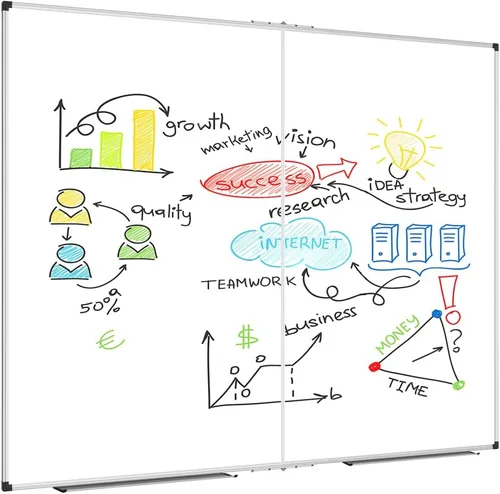 growth
marketing
vision
success
iDEA
strategy
research
quality
iNTERNET
TEAMWORK
50%
a
€
$
business
b
MONEY
TIME
!
?